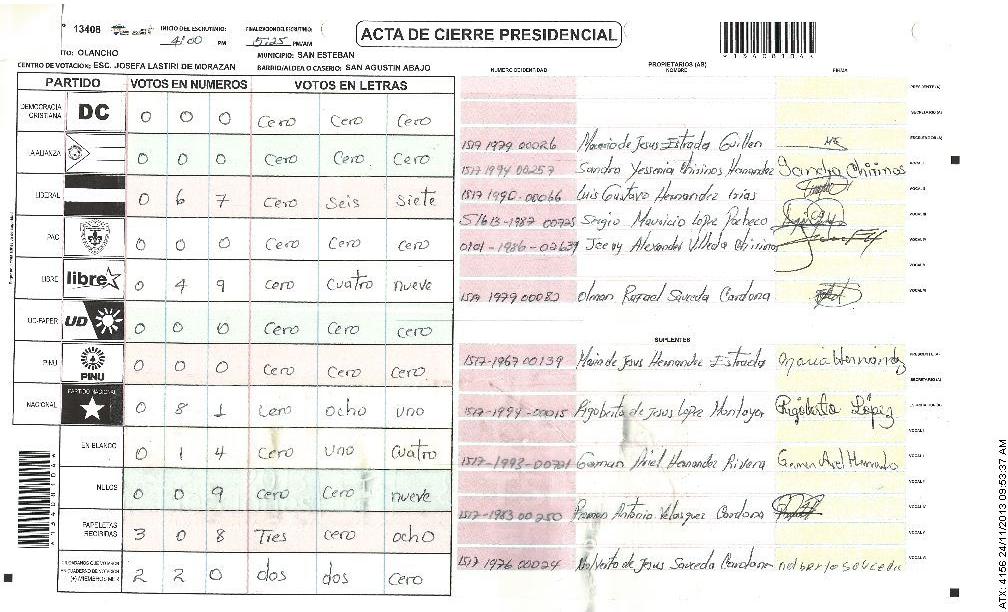 13408 INICIO DEL ESCRUTINIO: 4:00 PM FINALIZACION DEL ESCRUTINIO: 5:25 PM/AM
ACTA DE CIERRE PRESIDENCIAL
*13408104*
TO: OLANCHO MUNICIPIO: SAN ESTEBAN
CENTRO DE VOTACION: ESC. JOSEFA LASTIRI DE MORAZAN BARRIO/ALDEA O CASERIO: SAN AGUSTIN ABAJO
PARTIDO VOTOS EN NUMEROS VOTOS EN LETRAS
DEMOCRACIA CRISTIANA DC 0 0 0 Cero Cero Cero
LA ALIANZA 0 0 0 Cero Cero Cero
LIBERAL 0 6 7 Cero Seis Siete
PAC 0 0 0 Cero Cero Cero
LIBRE libre 0 4 9 Cero Cuatro nueve
UD-FAPER UD 0 0 0 Cero Cero Cero
PINU PINU 0 0 0 Cero Cero Cero
NACIONAL PARTIDO NACIONAL 0 8 1 Cero ocho uno
EN BLANCO 0 1 4 Cero uno Cuatro
NULOS 0 0 9 Cero Cero nueve
PAPELETAS RECIBIDAS 3 0 8 Tres cero ocho
CIUDADANOS QUE VOTARON EN CUADERNO DE VOTACION (+) MIEMBROS MER 2 2 0 dos dos cero
PROPIETARIOS (AS)
NUMERO DE IDENTIDAD NOMBRE FIRMA
PRESIDENTE (A)
SECRETARIO (A)
1517 1979 00026 Mauricio de Jesus Estrada Guillen ESCRUTADOR (A)
1517 1994 00257 Sandra Yessenia Chirinos Hernandez Sandra Chirinos VOCAL I
1517 1990-00066 Luis Gustavo Hernandez Irias VOCAL II
Sergio Mauricio Lopez Pacheco VOCAL III
0101-1986-02639 Alexander Villeda Chirinos VOCAL IV
VOCAL V
1517 1979 00082 Olman Rafael Sauceda Cardona VOCAL VI
SUPLENTES
1517-1967 00139 Maria de Jesus Hernandez Estrada Maria Hernandez PRESIDENTE (A)
SECRETARIO (A)
1517-1994-00015 Rigoberto de Jesus Lopez Montoya Rigoberto López
1517-1993-00721 German Ariel Hernandez Rivera German Ariel Hernandez VOCAL I
1517-1983 00250 Ramon Antonio Velasquez Cardona
1517 1976 00024 Nolberto de Jesus Sauceda Cardona nolberto sauceda
*13408104*
ATX: 4156 24/11/2013 09:53:37 AM